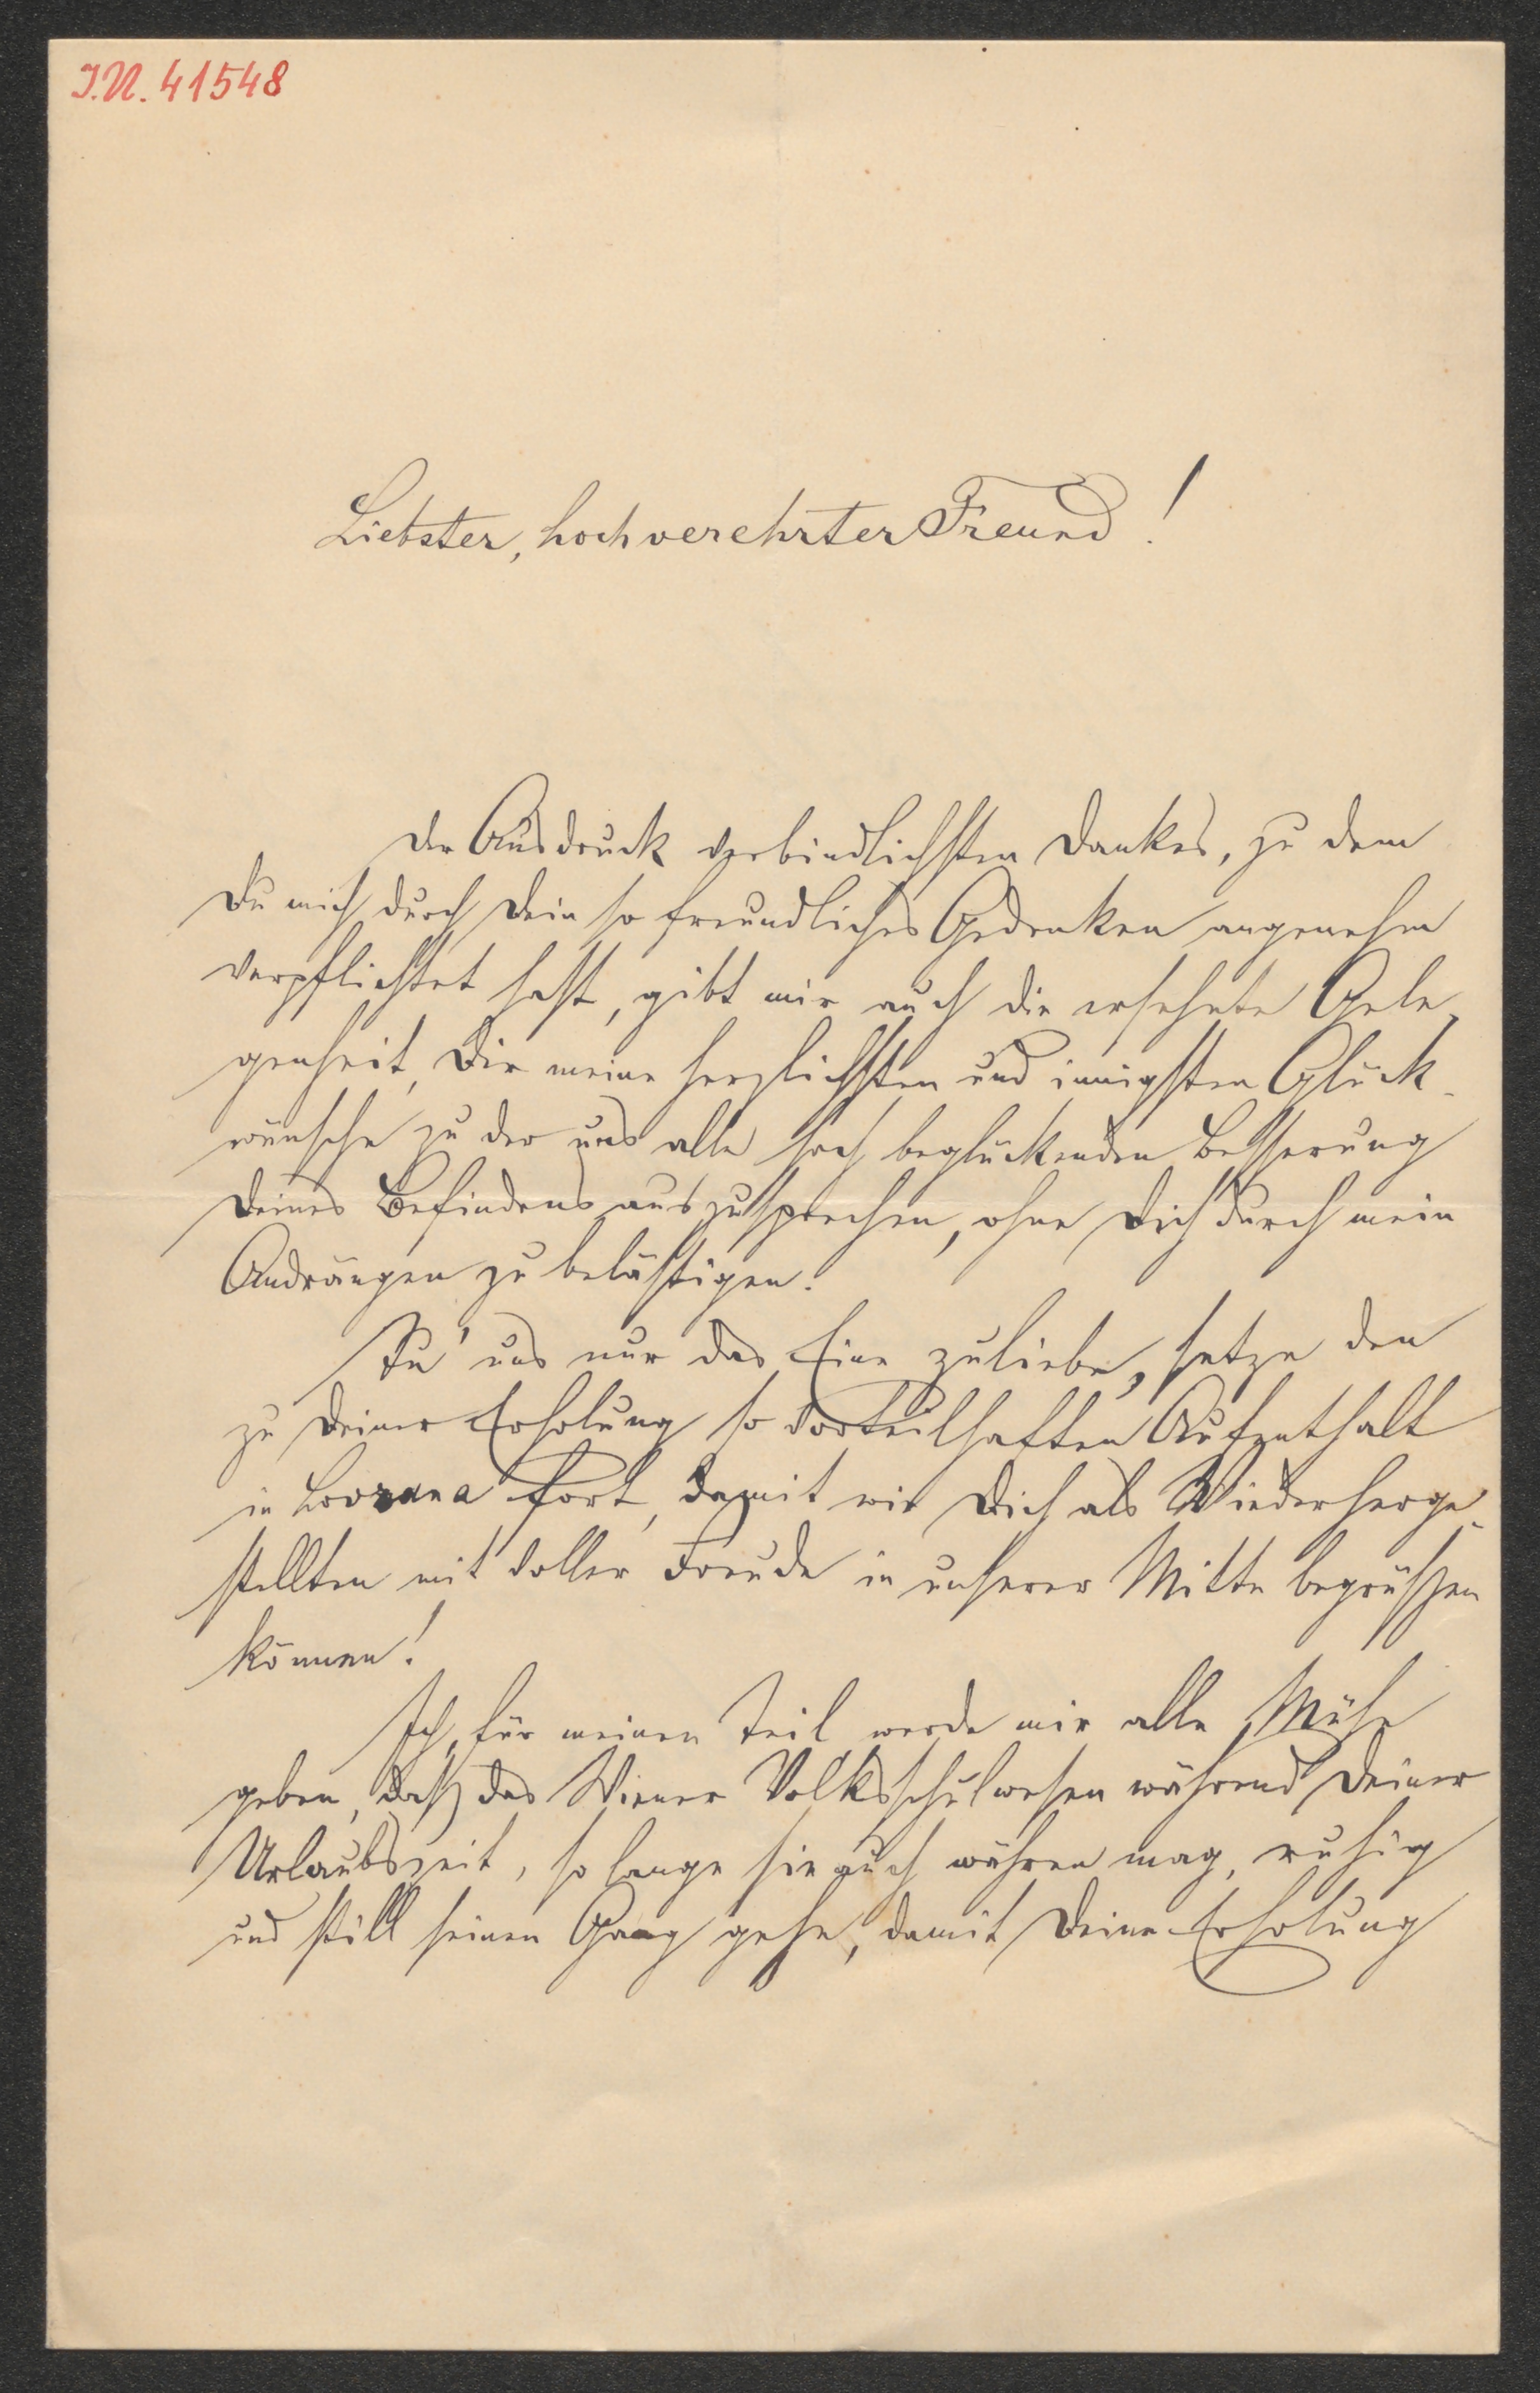 I.N. 41548
Liebster, hochverehrter Freund!
Der Ausdruck verbindlichsten Dankes, zu dem
Du mich durch Dein so freundliches Gedenken angenehm
verpflichtet hast, gibt mir auch die ersehnte Gele-
genheit, Dir meine herzlichsten und innigsten Glück-
wünsche zu der uns alle hoch beglückenden Besserung
Deines Befindens auszusprechen, ohne Dich durch mein
Andrängen zu belästigen.
Tu' uns nur das Eine zuliebe, setze den
zu Deiner Erholung so vorteilhaften Aufenthalt
in Lovrana fort, damit wir Dich als Wiederherge-
stellten mit voller Freude in unserer Mitte begrüßen
können!
Ich für meinen Teil werde mir alle Mühe
geben, daß das Wiener Volksschulwesen während Deiner
Urlaubszeit, so lange sie auch währen mag, ruhig
und still seinen Gang gehe, damit Deine Erholung